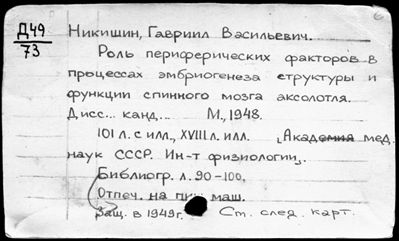 Д49
73
Никишин, Гавриил Васильевич.
Роль периферических факторов в
процессах эмбриогенеза структуры и
функции спинного мозга аксолотля.
Дисс... канд... М., 1948.
101 л. с илл., XVIII л. илл. „Академия мед.
наук СССР. Ин-т физиологии„.
Библиогр. л. 90-100.
Отпеч. на пиш. маш.
Защ. в 1949г. См. след. карт.